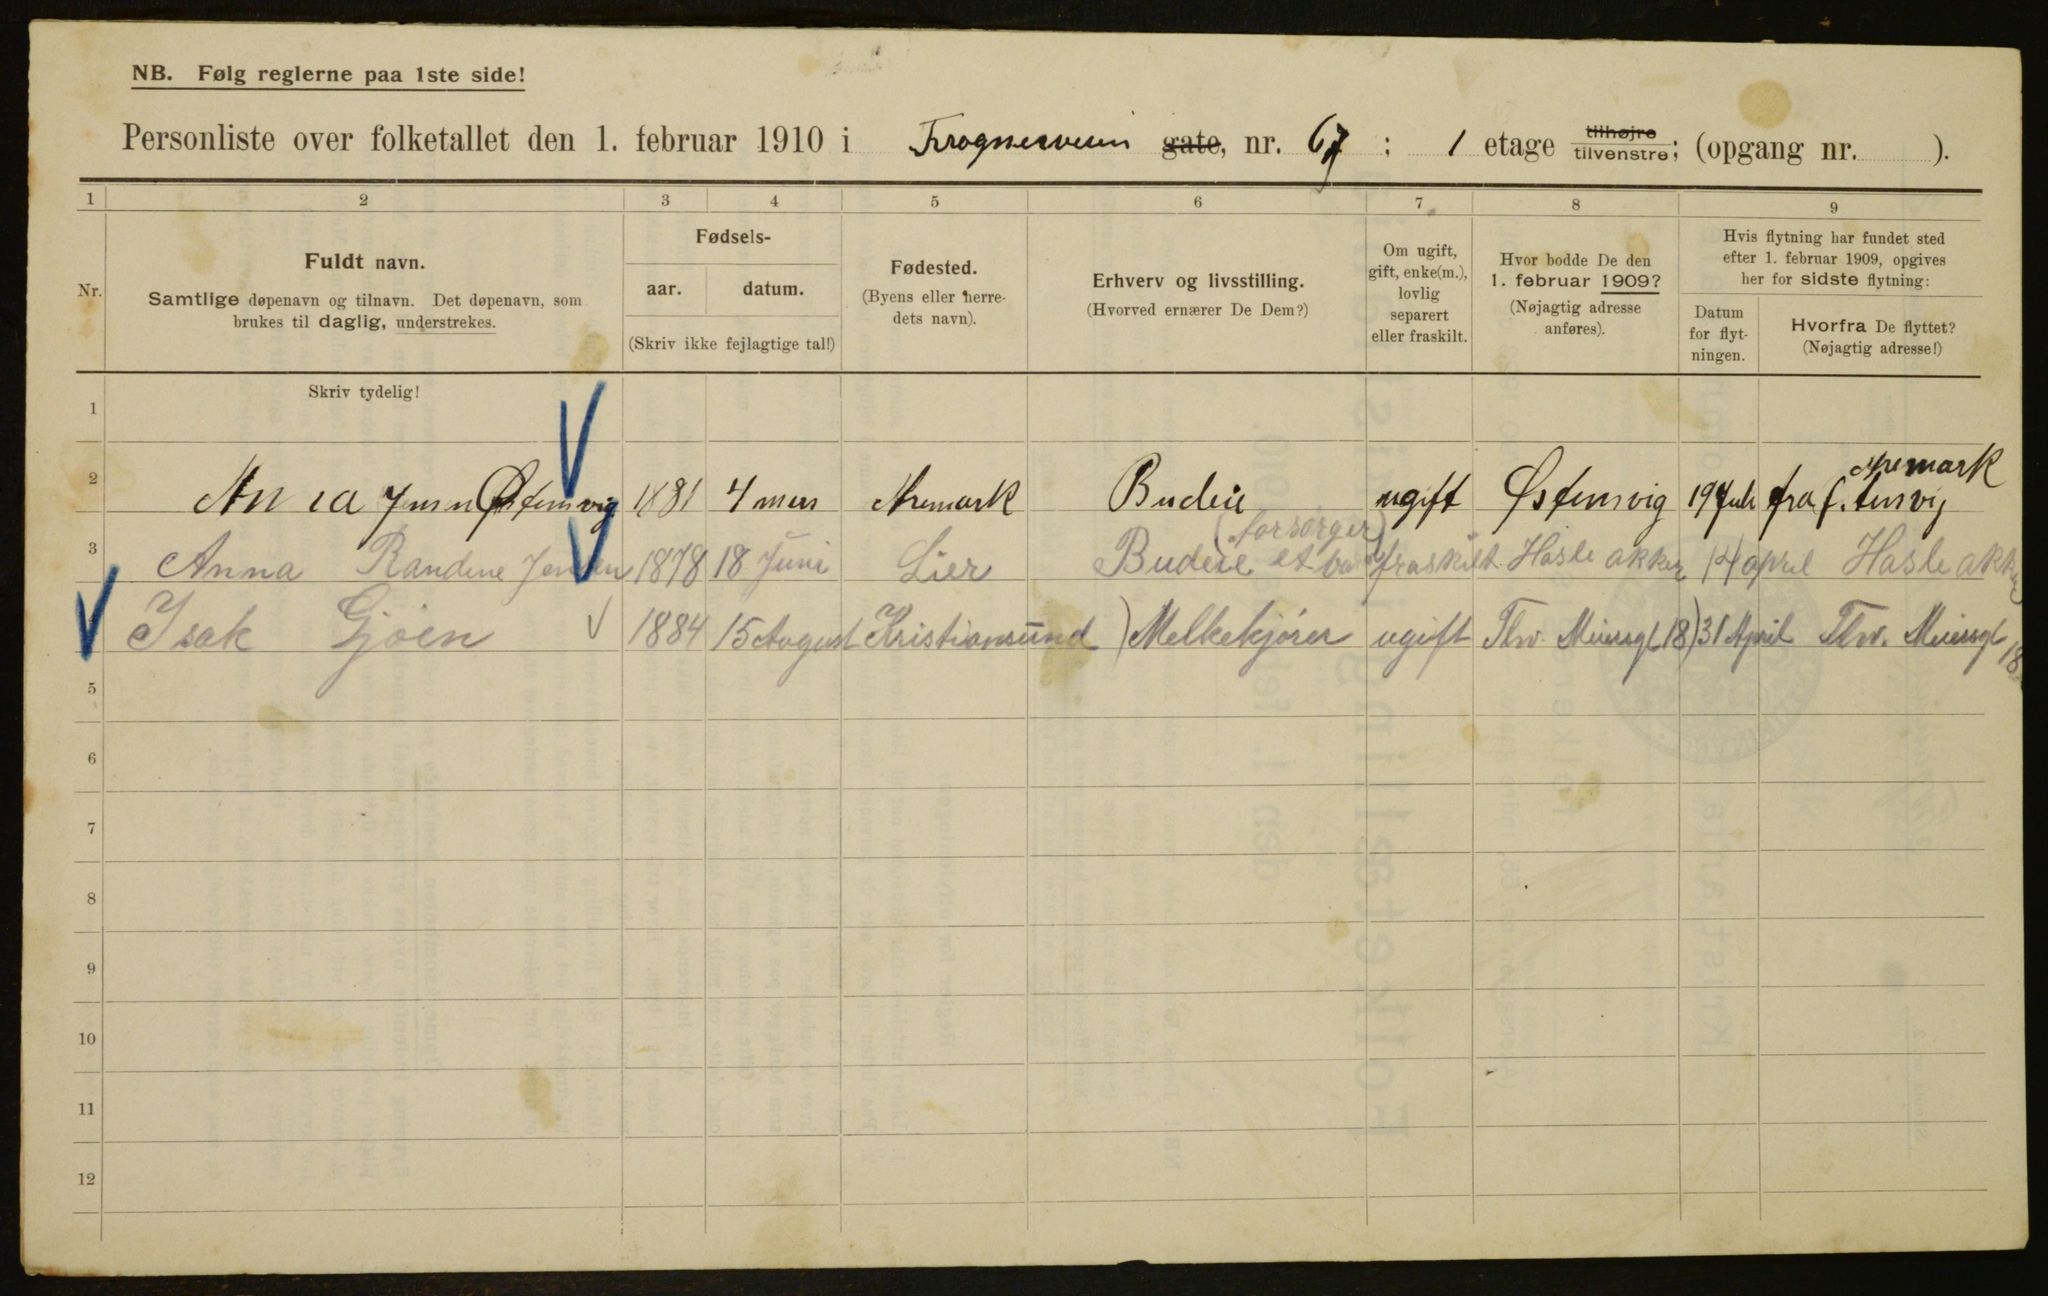 NB. Følg reglerne paa 1ste side!
Personliste over folketallet den 1. februar 1910 i Frognerveien gate, nr. 67 ; 1 etage tilhøjre tilvenstre; (opgang nr. ).
1 2 3 4 5 6 7 8 9
Nr.
Fuldt navn.
Samtlige døpenavn og tilnavn. Det døpenavn, som
brukes til daglig, understrekes.
Fødsels-
aar. datum.
(Skriv ikke fejlagtige tal!)
Fødested.
(Byens eller herre-
dets navn).
Erhverv og livsstilling.
(Hvorved ernærer De Dem?)
Om ugift,
gift, enke(m.),
lovlig
separert
eller fraskilt.
Hvor bodde De den
1. februar 1909?
(Nøjagtig adresse
anføres).
Hvis flytning har fundet sted
efter 1. februar 1909, opgives
her for sidste flytning:
Datum
for flyt-
ningen.
Hvorfra De flyttet?
(Nøjagtig adresse!)
Skriv tydelig!
1
2 Jensen Østensvig 1881 4 mars Aremark Budeie ugift Østensvig 19 fra Aremark
3 Anna Randine Jensen 1878 18 Juni Lier Budeie (forsørger et barn) fraskilt Hasle akker 14 april Hasle akker
Isak Gjøen 1884 15 August Kristiansund Melkekjører ugift Thv. Meiersgt 18 31 April Thv. Meiersgt 18
5
6
7
8
9
10
11
12